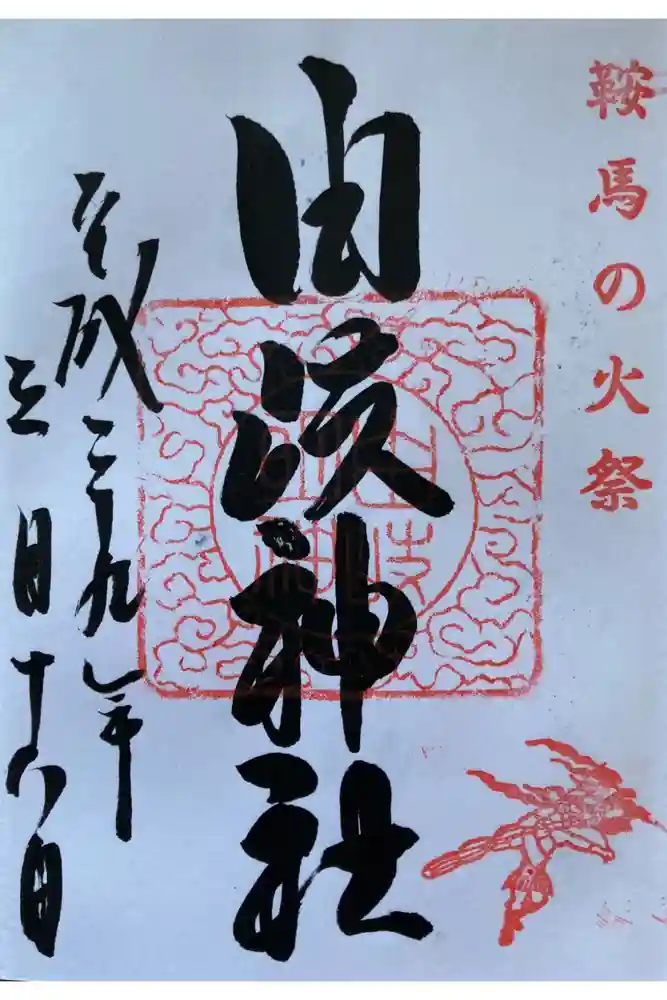 鞍馬の火祭
由岐神社
平成二九年
三月十八日